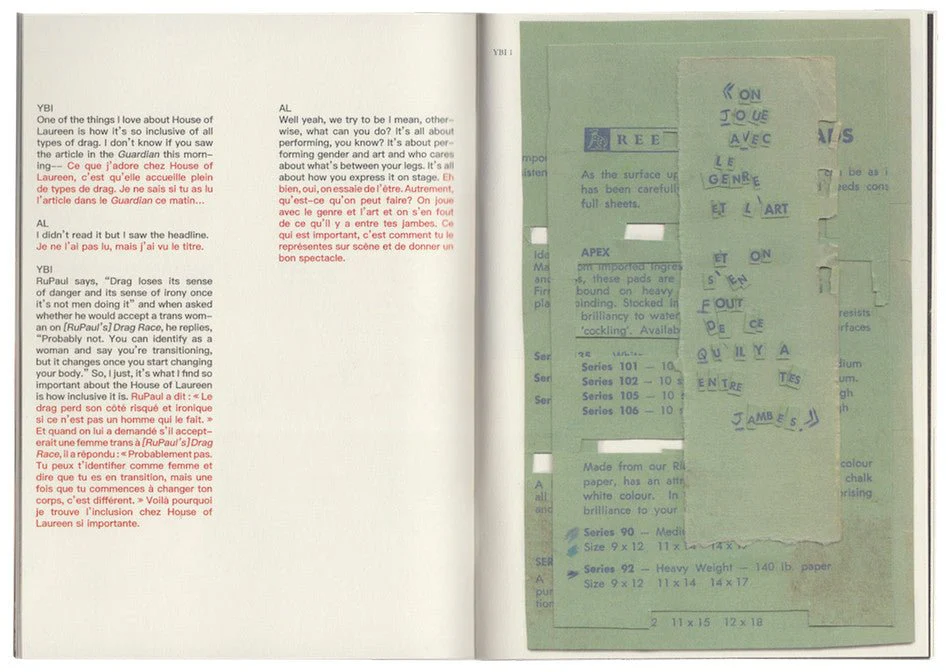 YBI
One of the things I love about House of
Laureen is how it's so inclusive of all
types of drag. I don't know if you saw
the article in the Guardian this morn-
ing— Ce que j'adore chez House of
Laureen, c'est qu'elle accueille plein
de types de drag. Je ne sais si tu as lu
l'article dans le Guardian ce matin...
AL
I didn't read it but I saw the headline.
Je ne l'ai pas lu, mais j'ai vu le titre.
YBI
RuPaul says, “Drag loses its sense
of danger and its sense of irony once
it's not men doing it” and when asked
whether he would accept a trans wom-
an on [RuPaul's] Drag Race, he replies,
“Probably not. You can identify as a
woman and say you're transitioning,
but it changes once you start changing
your body.” So, I just, it's what I find so
important about the House of Laureen
is how inclusive it is. RuPaul a dit : « Le
drag perd son côté risqué et ironique
si ce n'est pas un homme qui le fait. »
Et quand on lui a demandé s'il accept-
erait une femme trans à [RuPaul's] Drag
Race, il a répondu : « Probablement pas.
Tu peux t'identifier comme femme et
dire que tu es en transition, mais une
fois que tu commences à changer ton
corps, c'est différent. » Voilà pourquoi
je trouve l'inclusion chez House of
Laureen si importante.
AL
Well yeah, we try to be I mean, other-
wise, what can you do? It's all about
performing, you know? It's about per-
forming gender and art and who cares
about what's between your legs. It's all
about how you express it on stage. Eh
bien, oui, on essaie de l'être. Autrement,
qu'est-ce qu'on peut faire? On joue
avec le genre et l'art et on s'en fout
de ce qu'il y a entre tes jambes. Ce
qui est important, c'est comment tu le
représentes sur scène et de donner un
bon spectacle.
YBI 1
« ON
JOUE
AVEC
LE
GENRE
ET L'ART
ET ON
S'EN
FOUT
DE CE
QU'IL Y A
ENTRE TES
JAMBES. »
REE
As the surface
has been carefull
full sheets.
be as i
eeds cons
APEX
om imported
s, these pads are
bound on heavy
binding. Stocked
brilliancy to water
'cockling'. Availab
resists
rfaces
Series 101 — 10
Series 102 — 10 s
Series 105 — 10
Series 106 — 10
dium
um.
gh
gh
Made from our
paper, has an
white colour. In
brilliance to your
colour
chalk
prising
Series 90 — Medi
Size 9 x 12 11 x 14 14 x
Series 92 — Heavy Weight — 140 lb. paper
Size 9 x 12 11 x 14 14 x 17
2 11 x 15 12 x 18